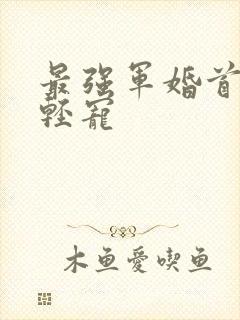 最强军婚首
轻宠
木鱼爱吃鱼